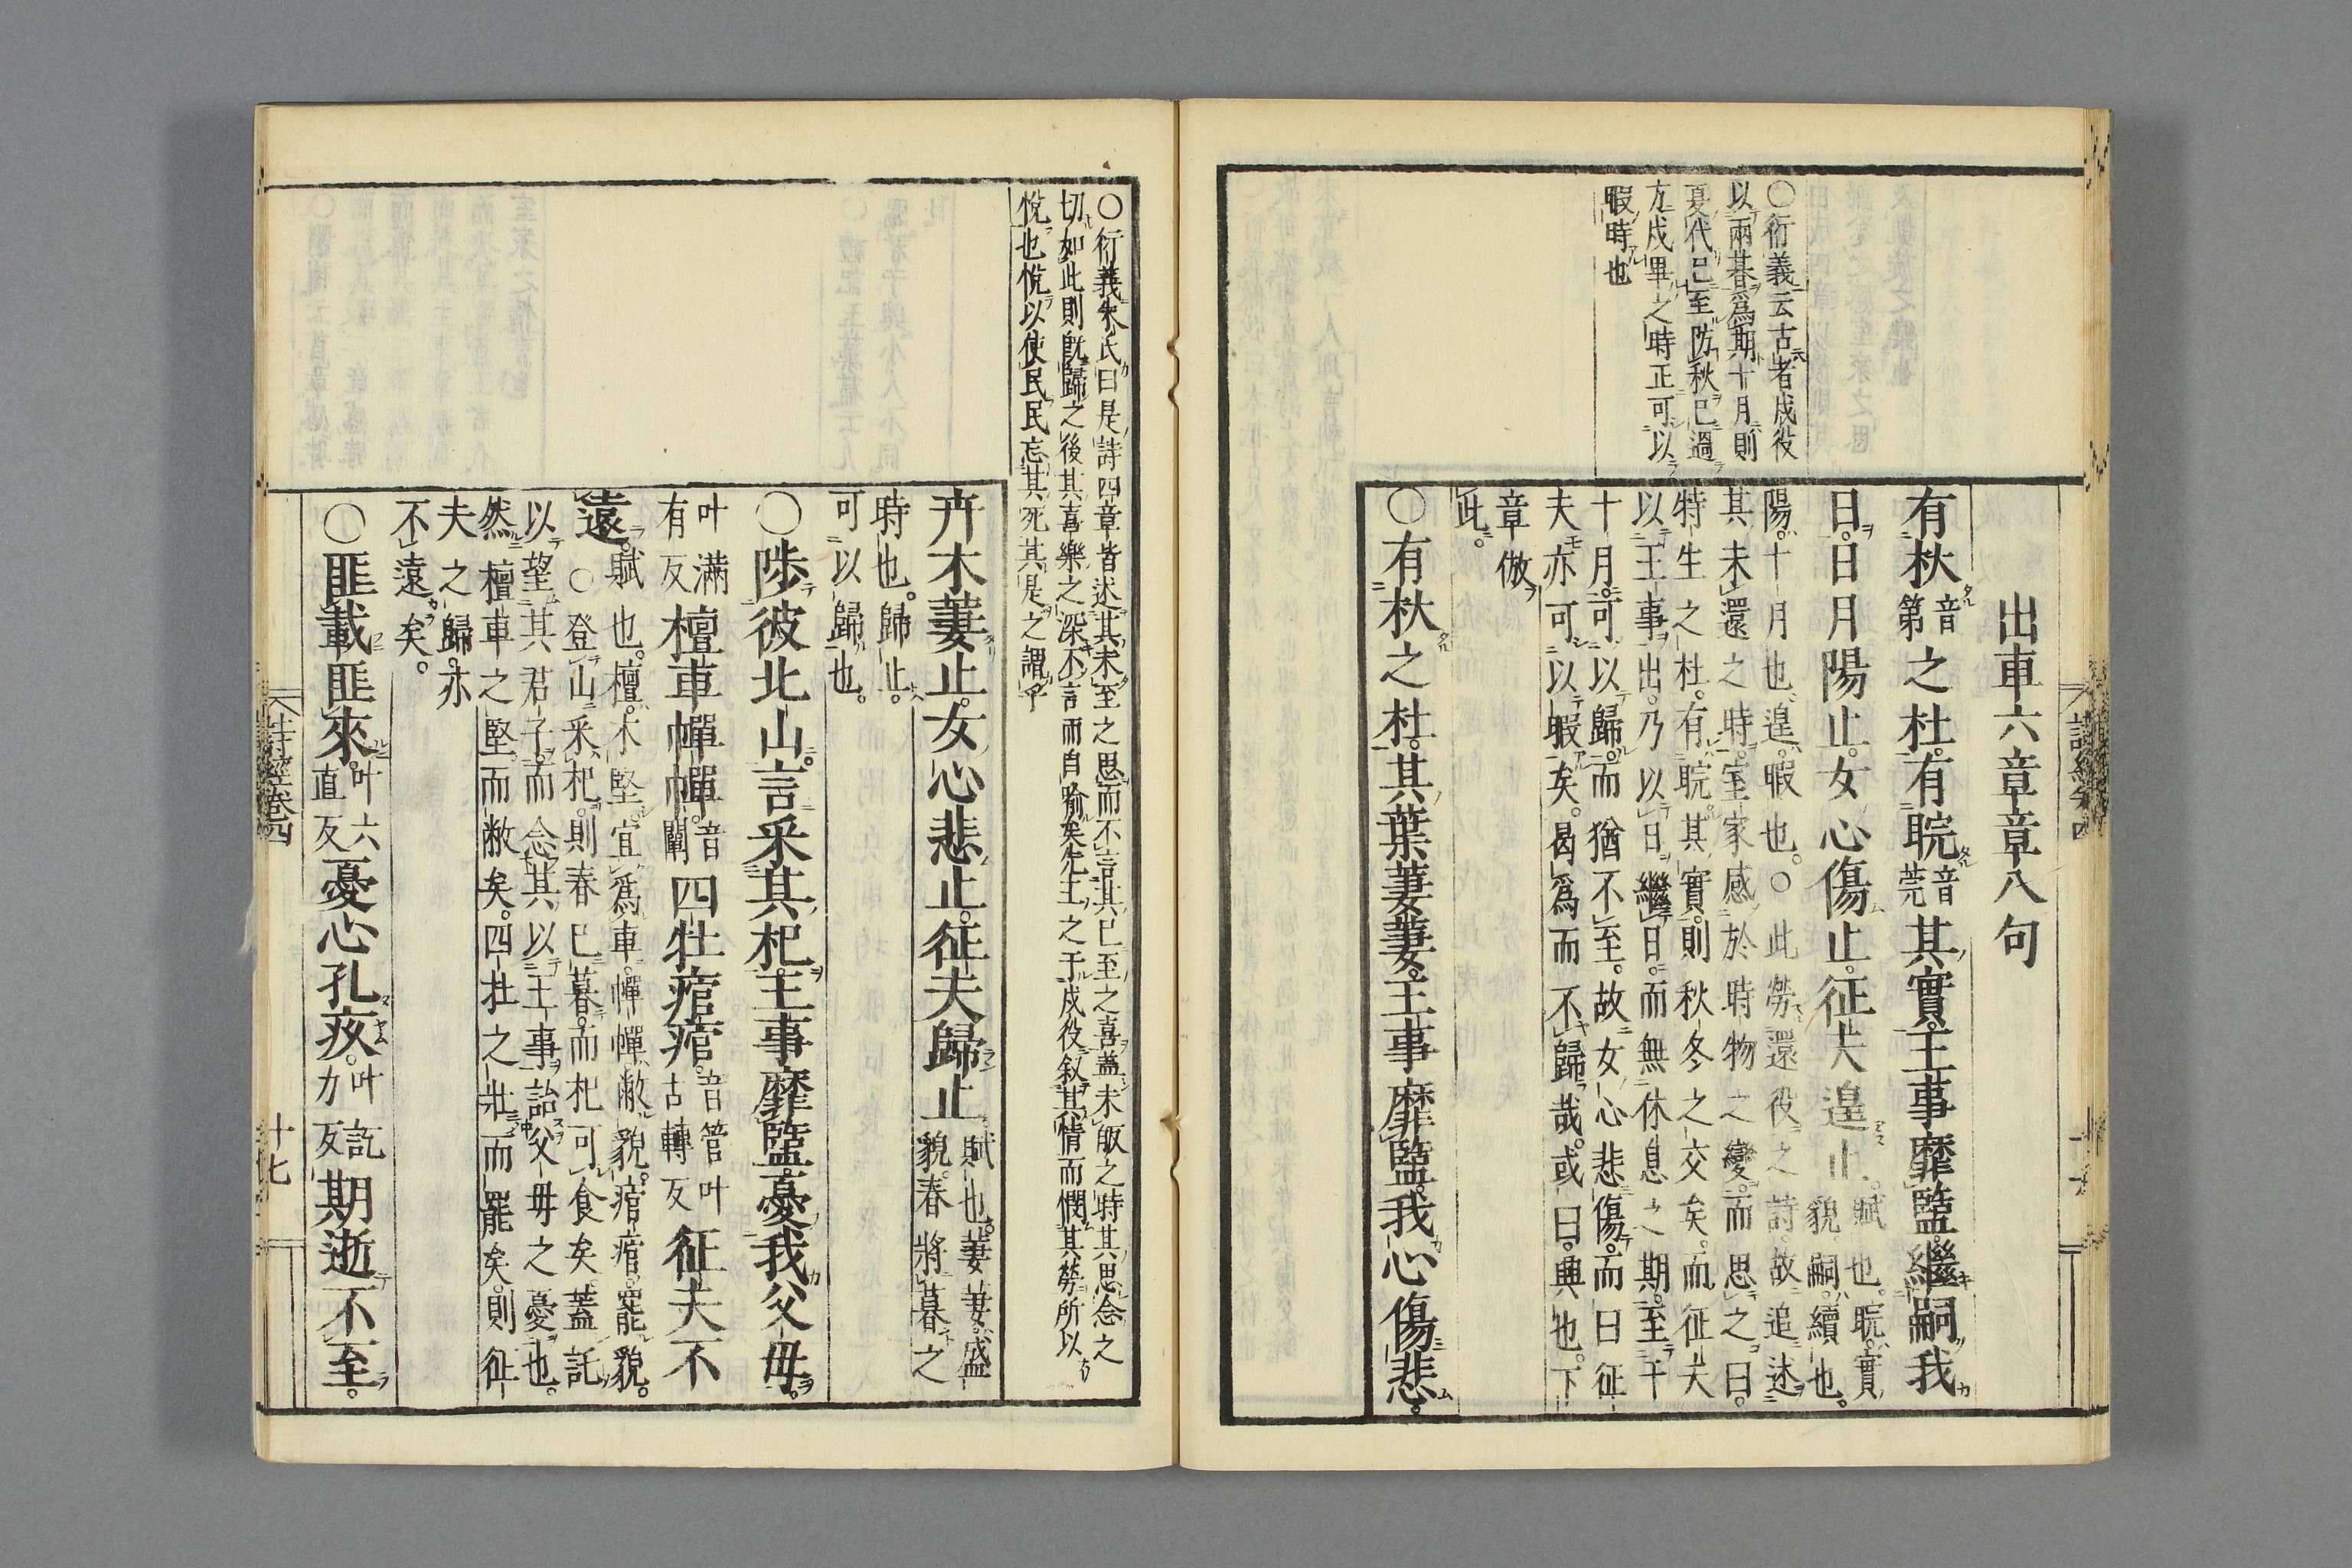 ○衍義云古者戍役
以兩朞爲期十月則
夏代已至防秋已過
方戍畢之時正可以
暇時也
出車六章章八句
有杕音第之杜。有睆音莞其實。王事靡盬。繼嗣我
日。日月陽止。女心傷止。征夫遑止。賦也。睆。實貌。嗣。續也。
陽。十月也。遑。暇也。○此勞還役之詩。故追述
其未還之時。室家感於時物之變。而思之曰。
特生之杜。有睆其實。則秋冬之交矣。而征夫
以王事出。乃以日繼日。而無休息之期。至于
十月。可以歸。而猶不至。故女心悲傷。而曰征
夫亦可以暇矣。曷爲而不歸哉。或曰。興也。下
章倣
此。
○有杕之杜。其葉萋萋。王事靡盬。我心傷悲。
○衍義朱氏曰是詩四章皆述其未至之思而不言其已至之喜蓋未皈之時其思念之
切如此則既歸之後其喜樂之深不言而自喻矣先王之于戍役叙其情而憫其勞所以
悅也悅以使民民忘其死其是之謂乎
卉木萋止。女心悲止。征夫歸止。賦也。萋萋。盛貌。春將暮之
時也。歸止。
可以歸也。
○陟彼北山。言采其杞。王事靡盬。憂我父母。
叶滿有反檀車幝幝。音闡四牡痯痯。音管叶古轉反征夫不
遠。賦也。檀。木堅。宜爲車。幝幝。敝貌。痯痯。罷貌。
○登山采杞。則春已暮。而杞可食矣。蓋託
以望其君子。而念其以王事詒父母之憂也。
然檀車之堅而敝矣。四牡之壯而罷矣。則征
夫之歸。亦
不遠矣。
○匪載匪來。叶六直反憂心孔疚。叶訖力反期逝不至。
詩經卷四
十七